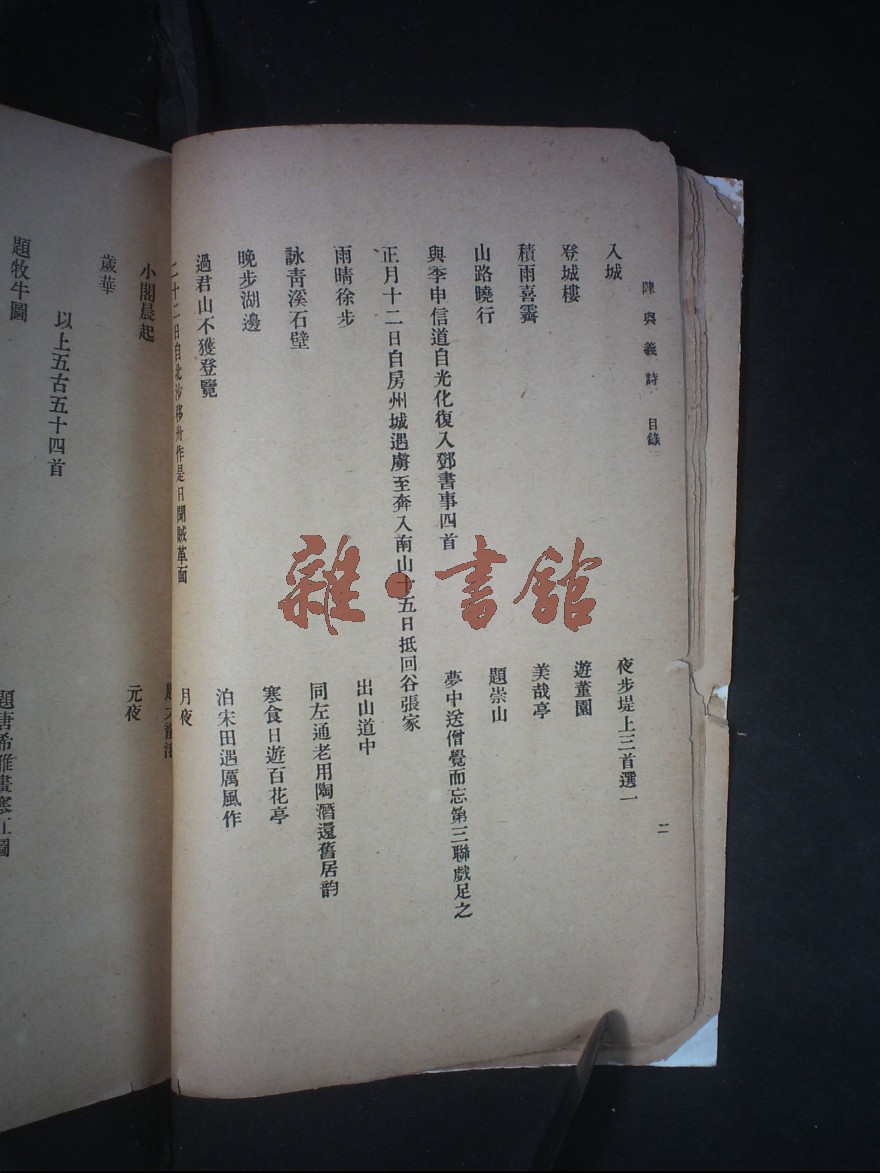 陳與義詩 目錄
二
入城
夜步堤上三首選一
登城樓
遊董園
積雨喜霽
美哉亭
山路曉行
題崇山
與季申信道自光化復入鄧書事四首
夢中送僧覺而忘第三聯戲足之
正月十二日自房州城遇虜至奔入南山十五日抵回谷張家
雨晴徐步
出山道中
詠青溪石壁
同左通老用陶潛還舊居韵
晚步湖邊
寒食日遊百花亭
過君山不獲登覽
泊宋田遇厲風作
二十二日自北沙移舟作是日聞賊革面
月夜
小閣晨起
歲華
元夜
以上五古五十四首
題牧牛圖
題唐希雅畫寒江圖
雜·書館